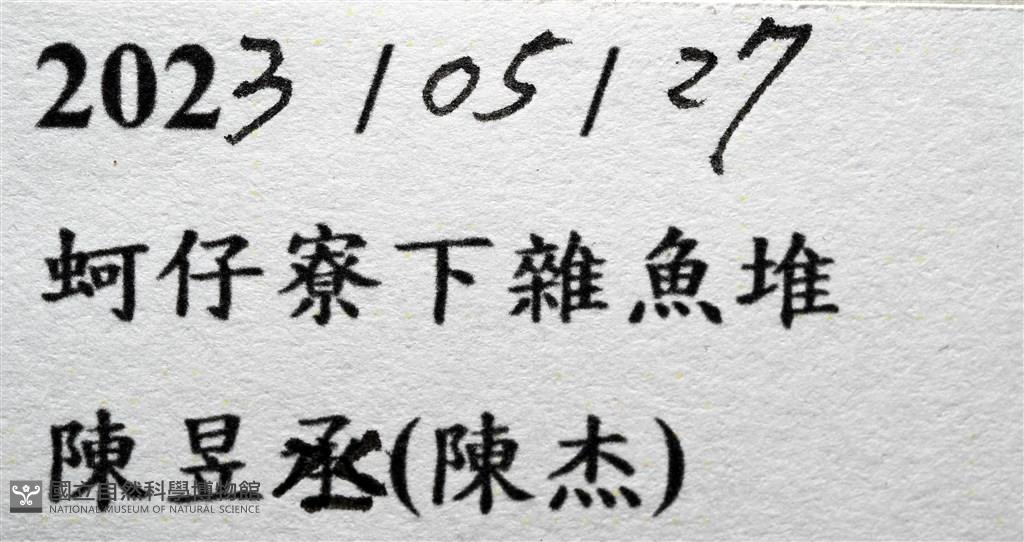 2023/05/27
蚵仔寮下雜魚堆
陳昱丞(陳杰)
國立自然科學博物館
NATIONAL MUSEUM OF NATURAL SCIENCE